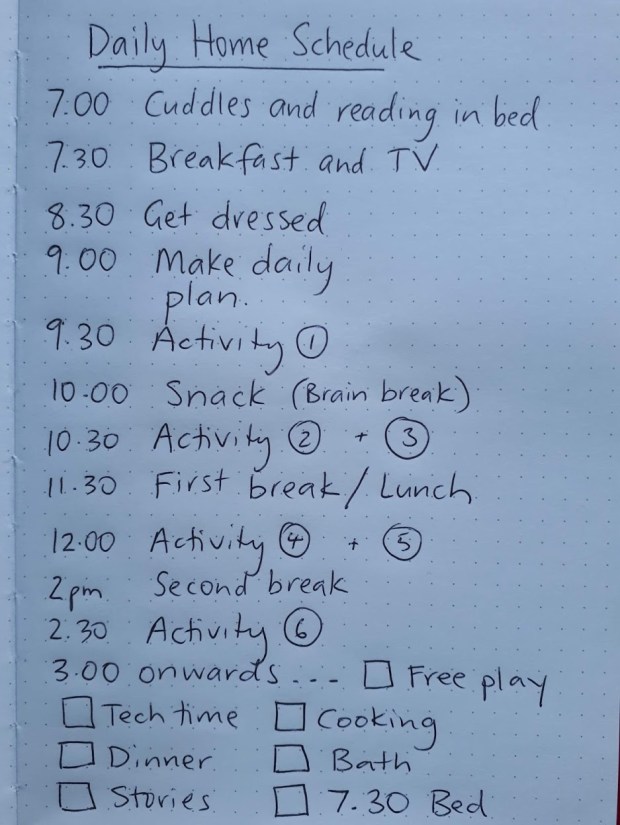 Daily Home Schedule
7.00 Cuddles and reading in bed
7.30 Breakfast and TV
8.30 Get dressed
9.00 Make daily
plan.
9.30 Activity ①
10.00 Snack (Brain break)
10.30 Activity ② + ③
11.30 First break/Lunch
12.00 Activity ④ + ⑤
2pm Second break
2.30 Activity ⑥
3.00 onwards... ☐ Free play
☐ Tech time ☐ Cooking
☐ Dinner ☐ Bath
☐ Stories ☐ 7.30 Bed